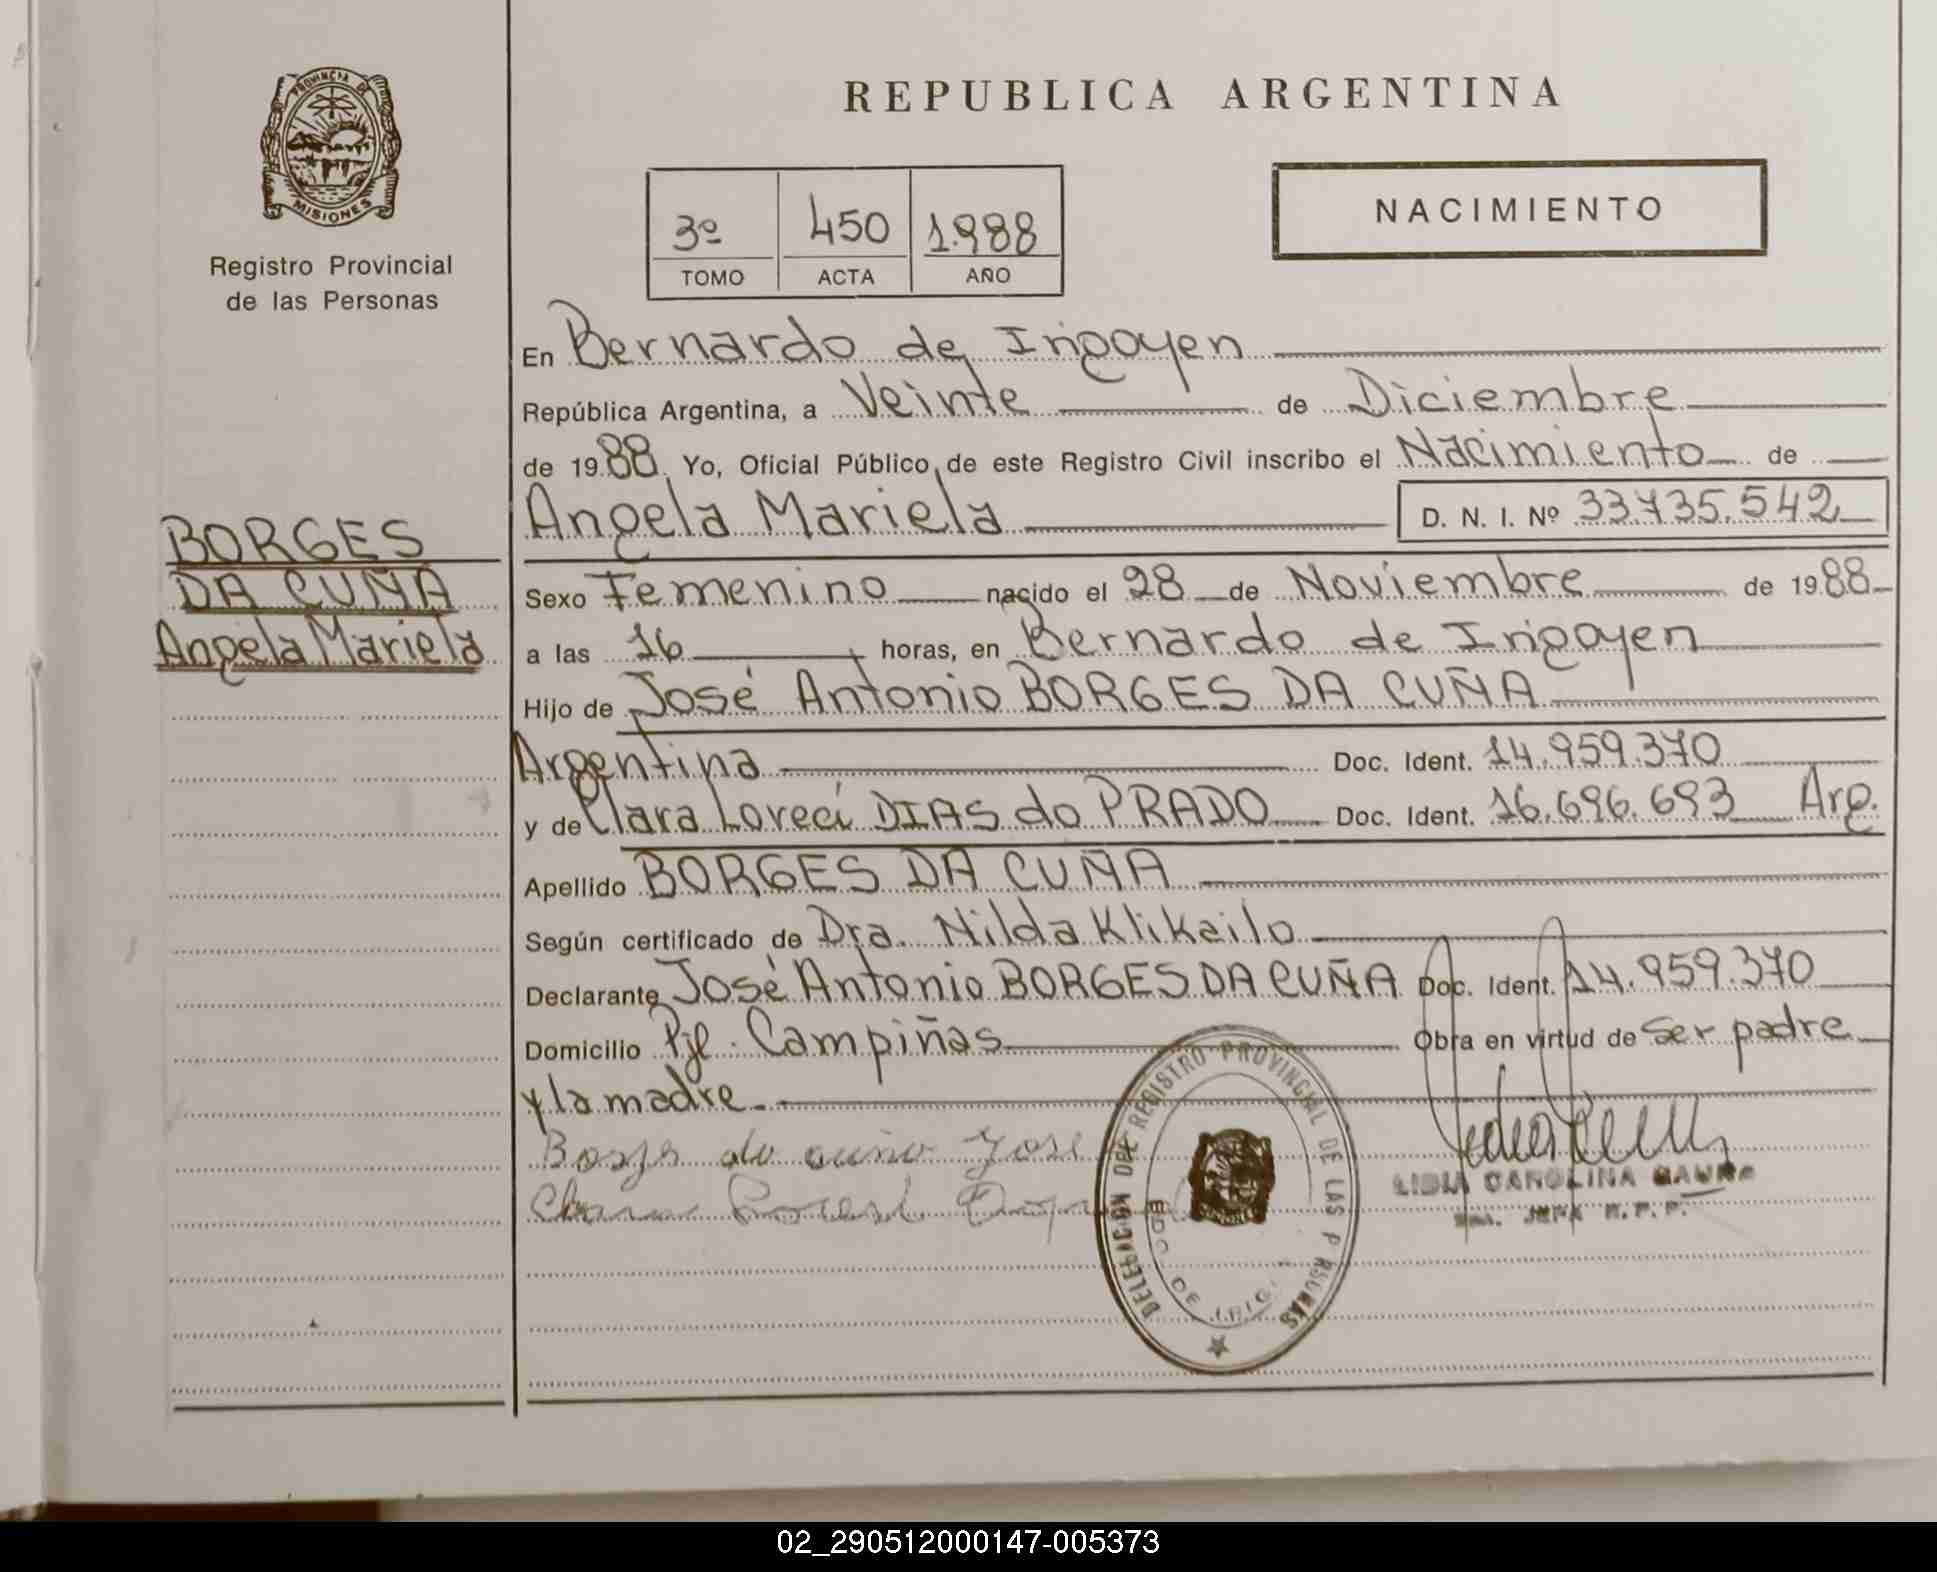 PROVINCIA DE
MISIONES
Registro Provincial
de las Personas
BORGES
DA CUÑA
Angela Mariela
REPUBLICA ARGENTINA
3º 450 1.988
TOMO ACTA AÑO
NACIMIENTO
En Bernardo de Irigoyen
República Argentina, a Veinte de Diciembre
de 1988. Yo, Oficial Público, de este Registro Civil inscribo el Nacimiento de
Angela Mariela D. N. I. Nº 33.735.542
Sexo Femenino nacido el 28 de Noviembre de 1988
a las 16 horas, en Bernardo de Irigoyen
Hijo de José Antonio BORGES DA CUÑA
Argentina Doc. Ident. 14.959.370
y de Clara Loreci DIAS do PRADO Doc. Ident. 16.696.693 Arg.
Apellido BORGES DA CUÑA
Según certificado de Dra. Nilda Klikailo
Declarante José Antonio BORGES DA CUÑA Doc. Ident. 14.959.370
Domicilio Pje. Campiñas Obra en virtud de ser padre
y la madre
DELEGACION DEL REGISTRO PROVINCIAL DE LAS P RSONAS
BDO. DE IRIG
LIDIA CAROLINA
JEFA R.P.P.
02_290512000147-005373